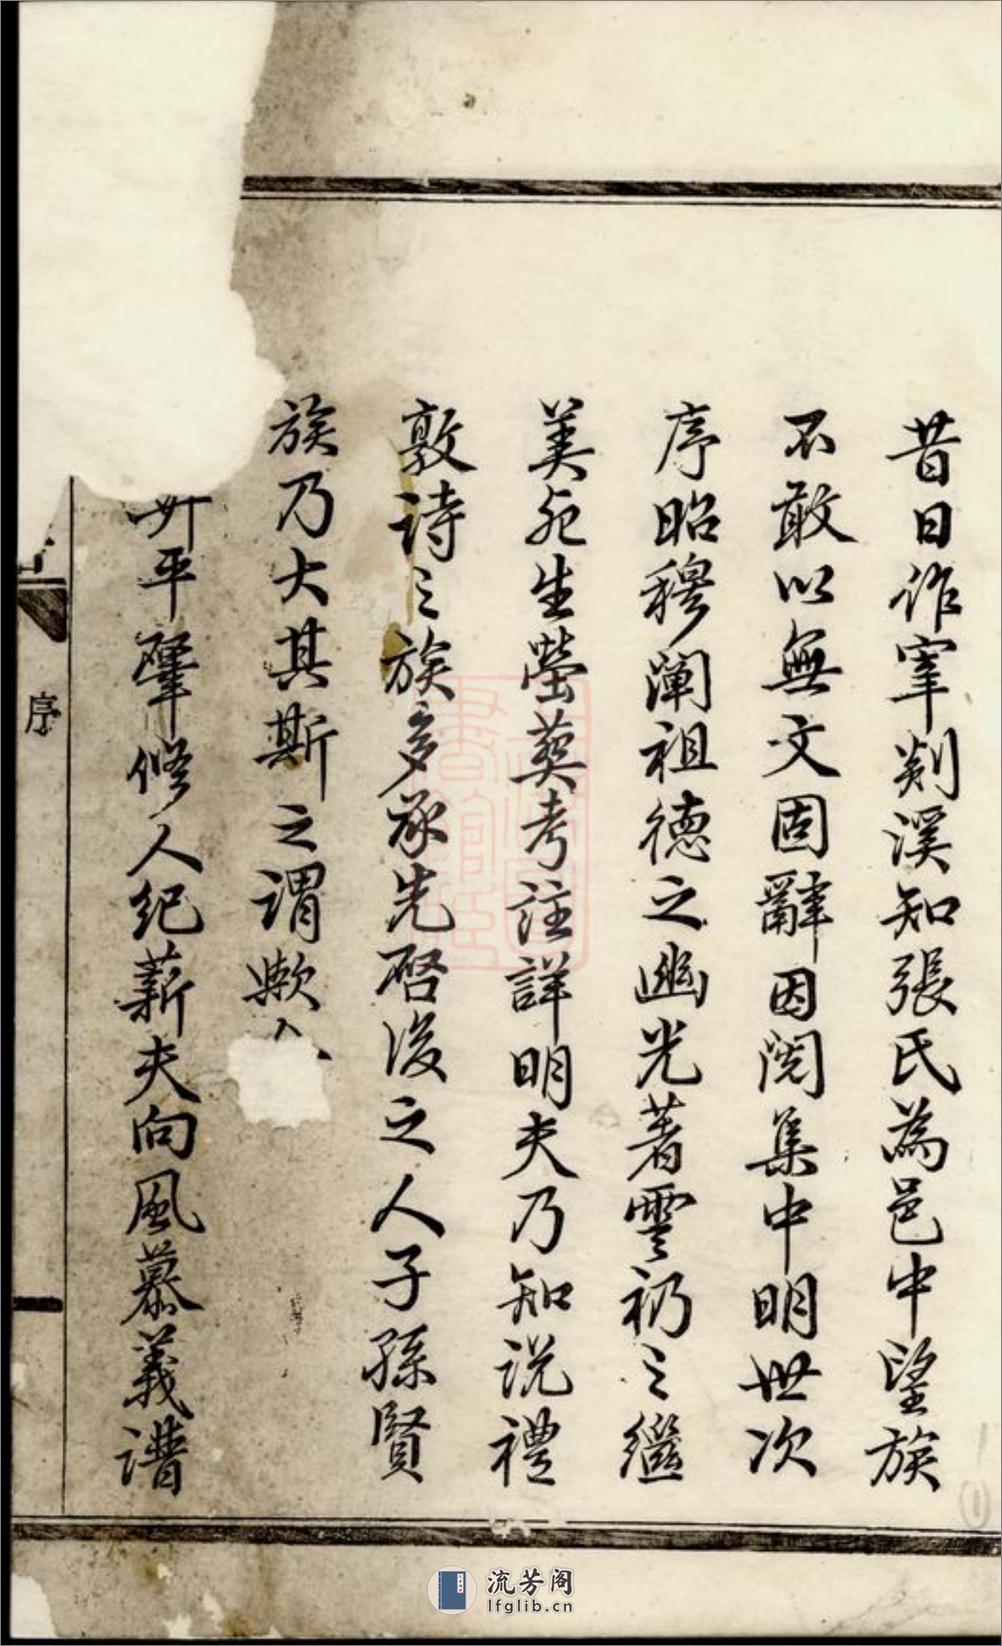 昔日作宰剡溪知張氏為邑中望族
不敢以無文固辭因閱集中明世次
序昭穆闡祖德之幽光著雲礽之繼
美死生塋葬考註詳明夫乃知説禮
敦詩之族多承先啓後之人子孫賢
族乃大其斯之謂歟
平肇修人紀薪夫向風慕義譜
序
流芳阁
lfglib.cn